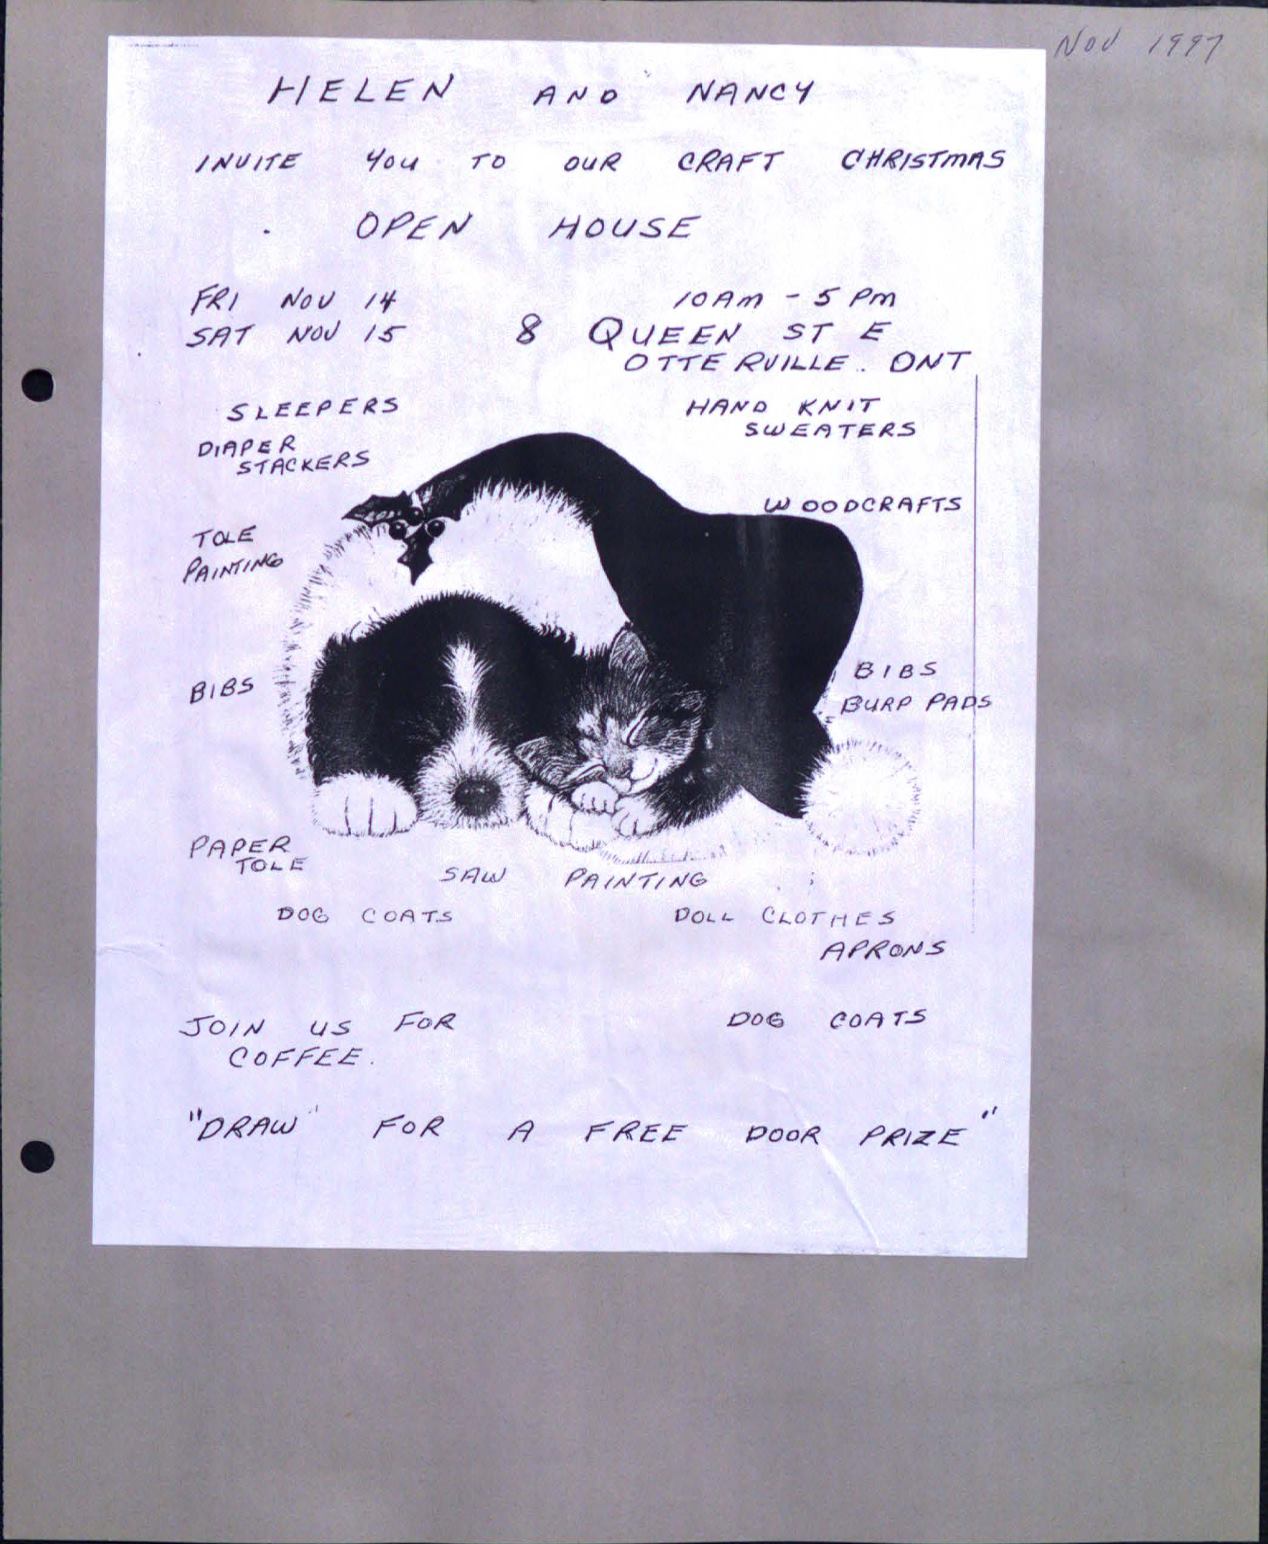 NOV 1997
HELEN AND NANCY
INVITE YOU TO OUR CRAFT CHRISTMAS
OPEN HOUSE
FRI NOV 14 10 AM - 5 PM
SAT NOV 15 8 QUEEN ST E
OTTERVILLE. ONT
SLEEPERS
HAND KNIT
SWEATERS
DIAPER
STACKERS
WOODCRAFTS
TOLE
PAINTING
BIBS
BIBS
BURP PADS
PAPER
TOLE
SAW PAINTING
DOG COATS
DOLL CLOTHES
APRONS
JOIN US FOR
COFFEE.
DOG COATS
"DRAW" FOR A FREE DOOR PRIZE"